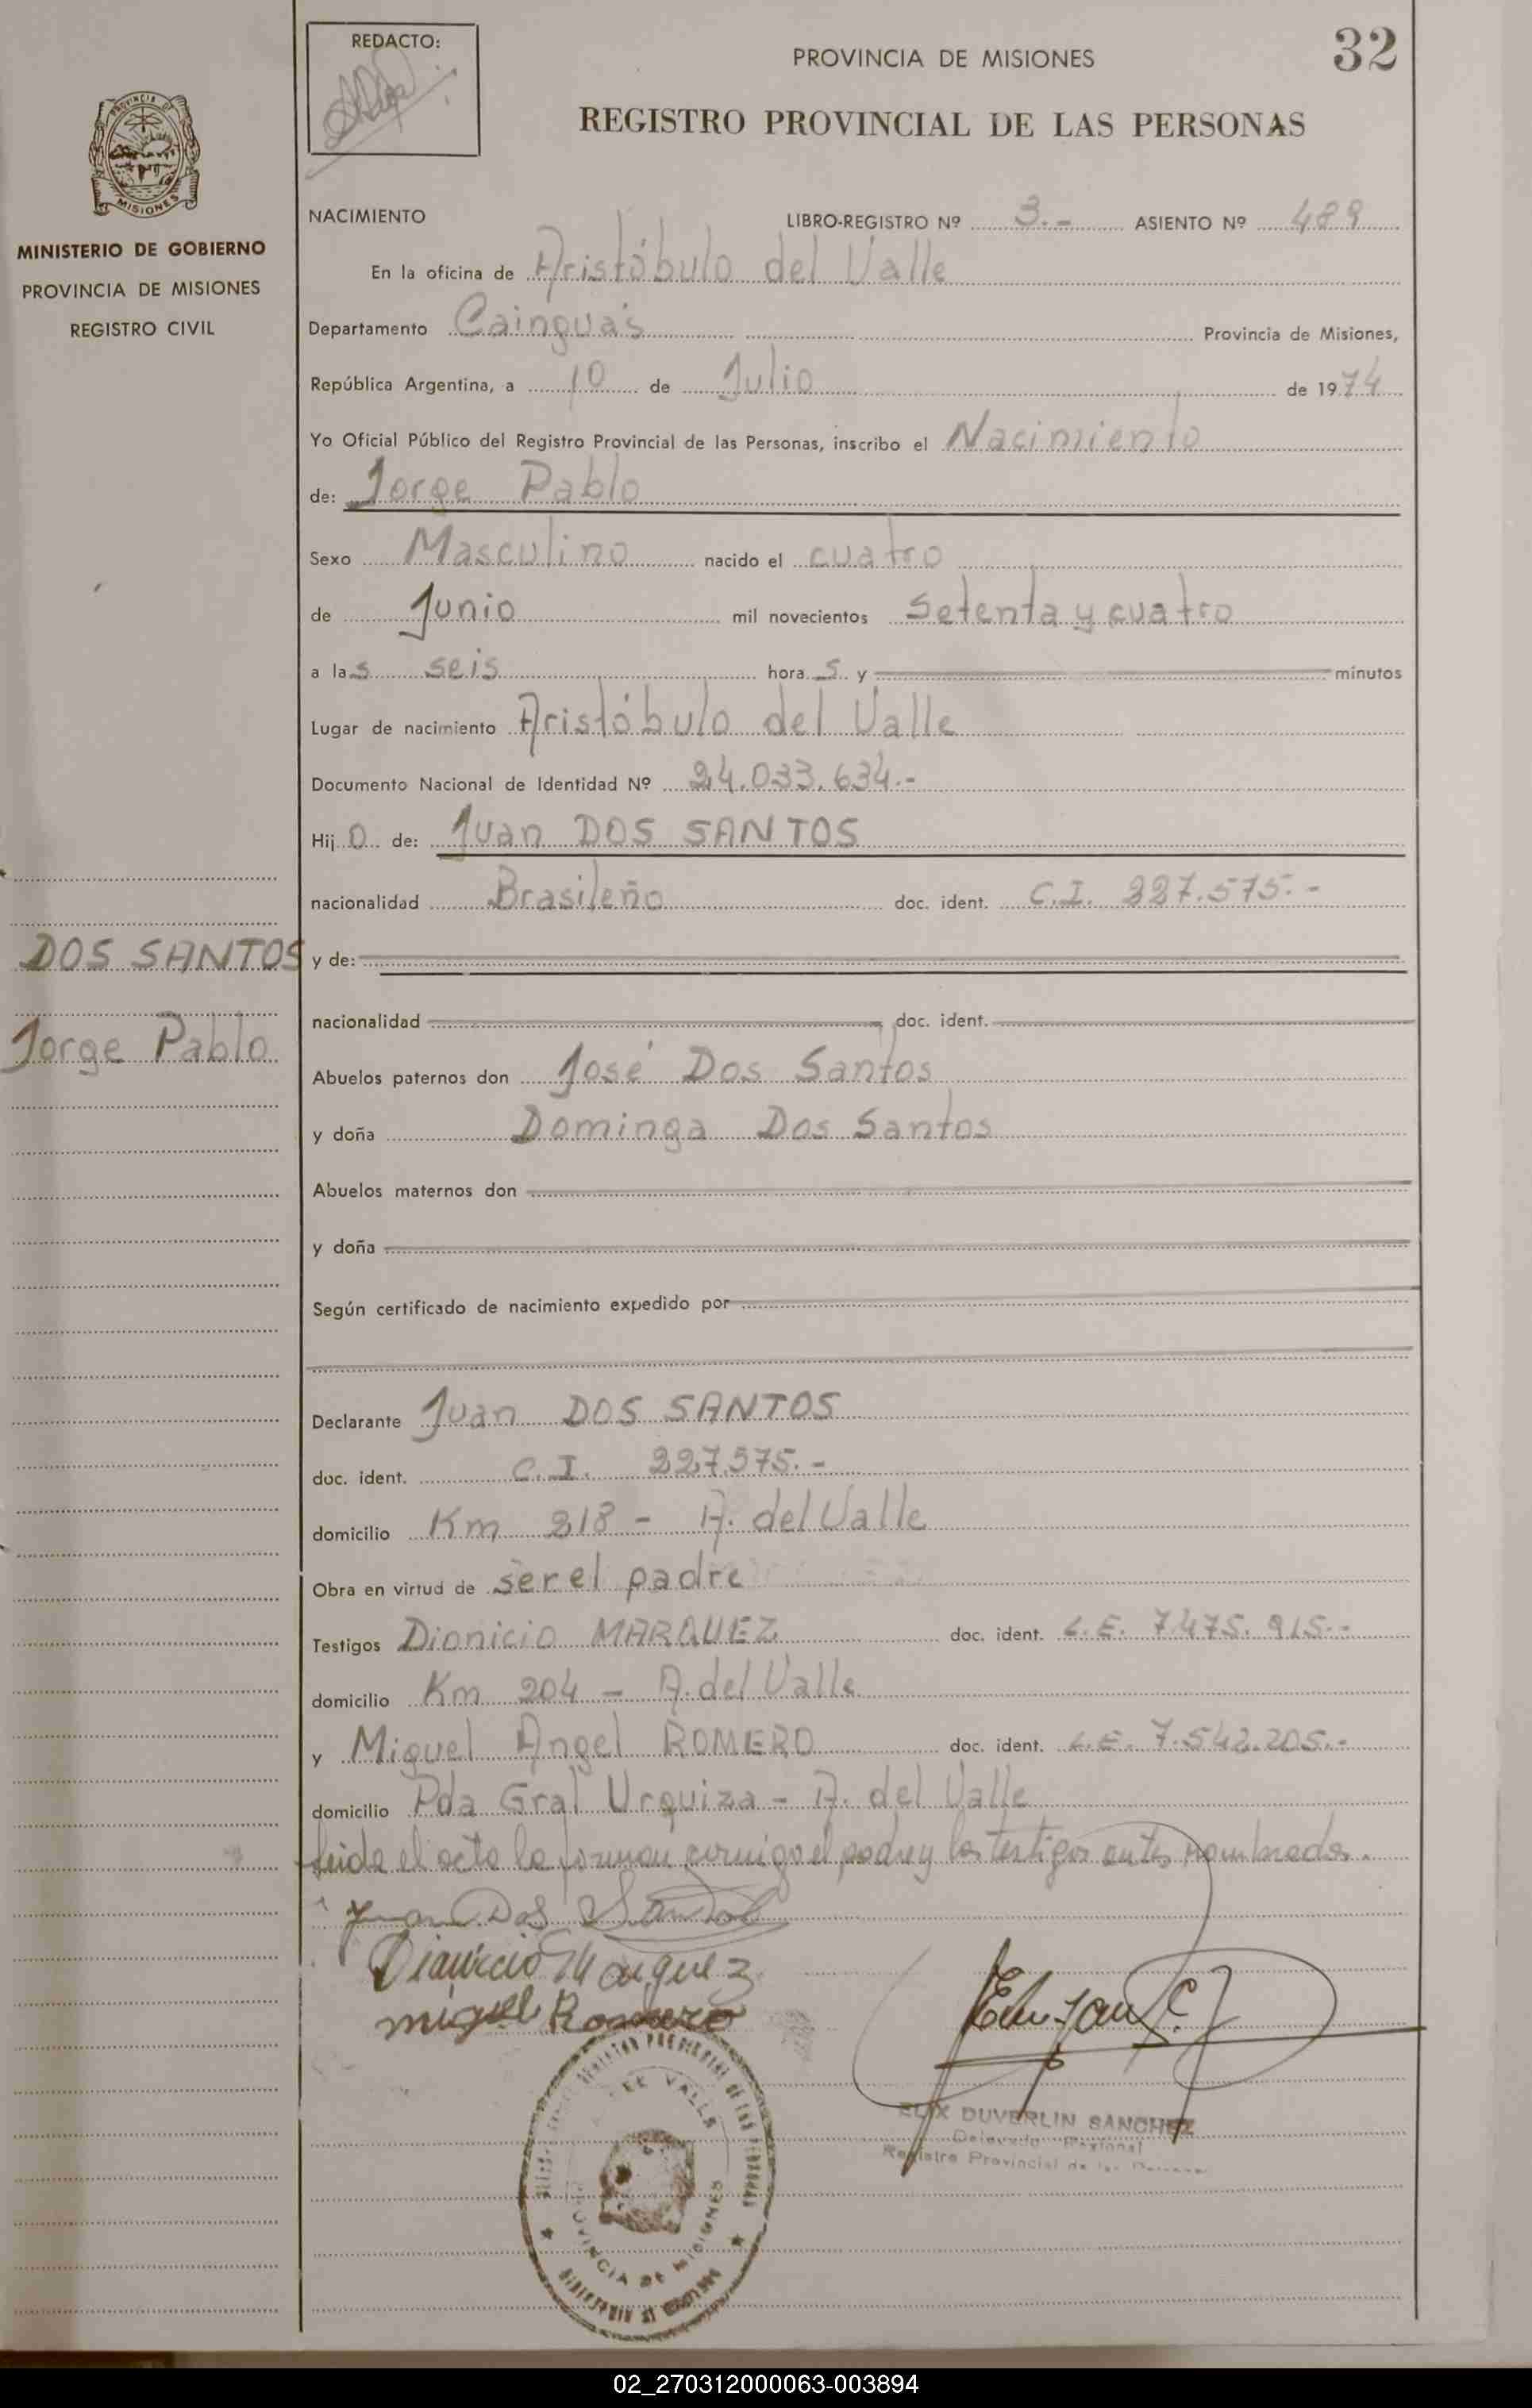 REDACTO:
PROVINCIA DE MISIONES
32
REGISTRO PROVINCIAL DE LAS PERSONAS
PROVINCIA DE
MISIONES
MINISTERIO DE GOBIERNO
PROVINCIA DE MISIONES
REGISTRO CIVIL
NACIMIENTO LIBRO-REGISTRO Nº 3.- ASIENTO Nº 489
En la oficina de Aristóbulo del Valle
Departamento Cainguás Provincia de Misiones,
República Argentina, a 10 de Julio de 1974
Yo Oficial Público del Registro Provincial de las Personas, inscribo el Nacimiento
de: Jorge Pablo
Sexo Masculino nacido el cuatro
de Junio mil novecientos setenta y cuatro
a las seis horas y minutos
Lugar de nacimiento Aristóbulo del Valle
Documento Nacional de Identidad Nº 24.033.634.-
Hijo de: Juan DOS SANTOS
nacionalidad Brasileño doc. ident. C.I. 227.575.-
DOS SANTOS
y de:
nacionalidad doc. ident.
Jorge Pablo
Abuelos paternos don José Dos Santos
y doña Dominga Dos Santos
Abuelos maternos don
y doña
Según certificado de nacimiento expedido por
Declarante Juan DOS SANTOS
doc. ident. C.I. 227.575.-
domicilio Km 218 - A. del Valle
Obra en virtud de ser el padre
Testigos Dionicio MARQUEZ doc. ident. L.E. 7.475.915.-
domicilio Km 204 - A. del Valle
y Miguel Angel ROMERO doc. ident. L.E. 7.542.205.-
domicilio Pda Gral Urquiza - A. del Valle
Leida el acta la firman conmigo el padre y los testigos antes nombrados.
Juan Dos Santos
Dionicio Marquez
miguel Romero
DUVERLIN SANCHEZ
Delegado Regional
Registro Provincial de las Personas
PROVINCIA DE MISIONES
02_270312000063-003894